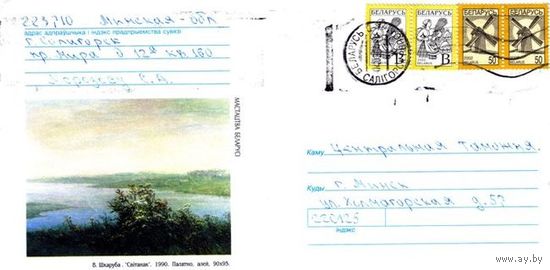 223710 Минская обл
адрас адпраўшчыка і індэкс прадпрыемства сувязі
г. Солигорск
пр. Мира д 12а кв. 160
МАСТАЦТВА БЕЛАРУСІ
В. Шкаруба. "Світанак". 1990. Палатно, алей. 90x95.
БЕЛАРУСЬ
БЕЛАРУСЬ
БЕЛАРУСЬ
БЕЛАРУСЬ
B
50
50
БЕЛАРУСЬ
САЛІГОРСК
Каму Центральная Таможня.
Куды г. Минск
ул. Холмогорская д. 57
220125
індэкс
www.ay.by